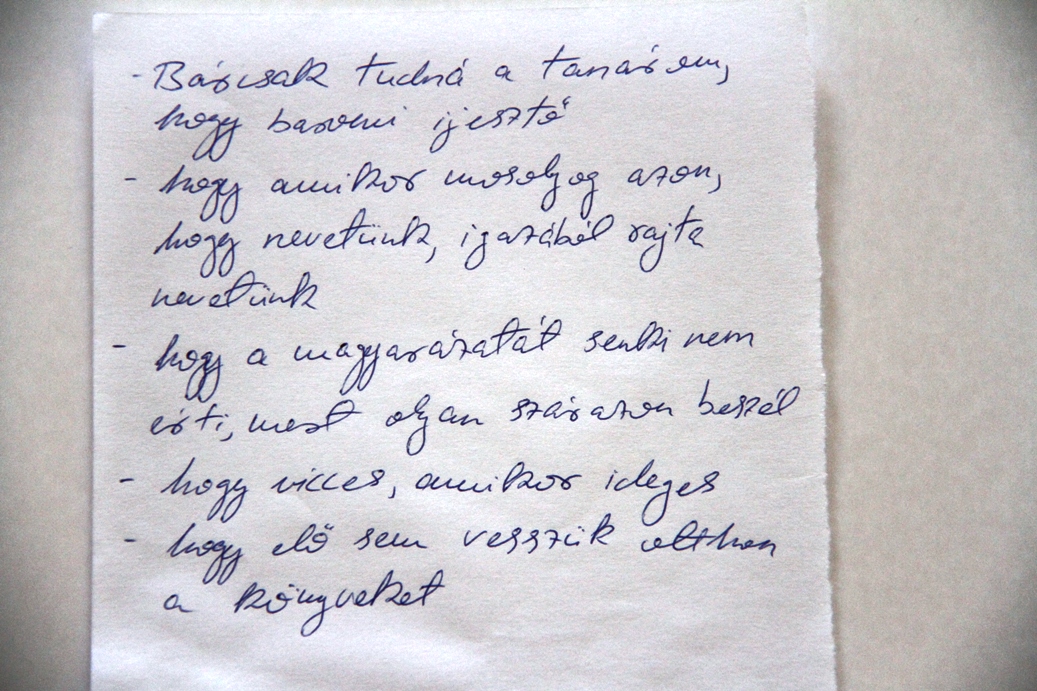 - Bárcsak tudná a tanárom,
hogy baromi ijesztő
- hogy amikor mosolyog azon,
hogy nevetünk, igazából rajta
nevetünk
- hogy a magyarázatát senki nem
érti, mert olyan szárazon beszél
- hogy vicces, amikor ideges
- hogy elő sem vesszük otthon
a könyveket